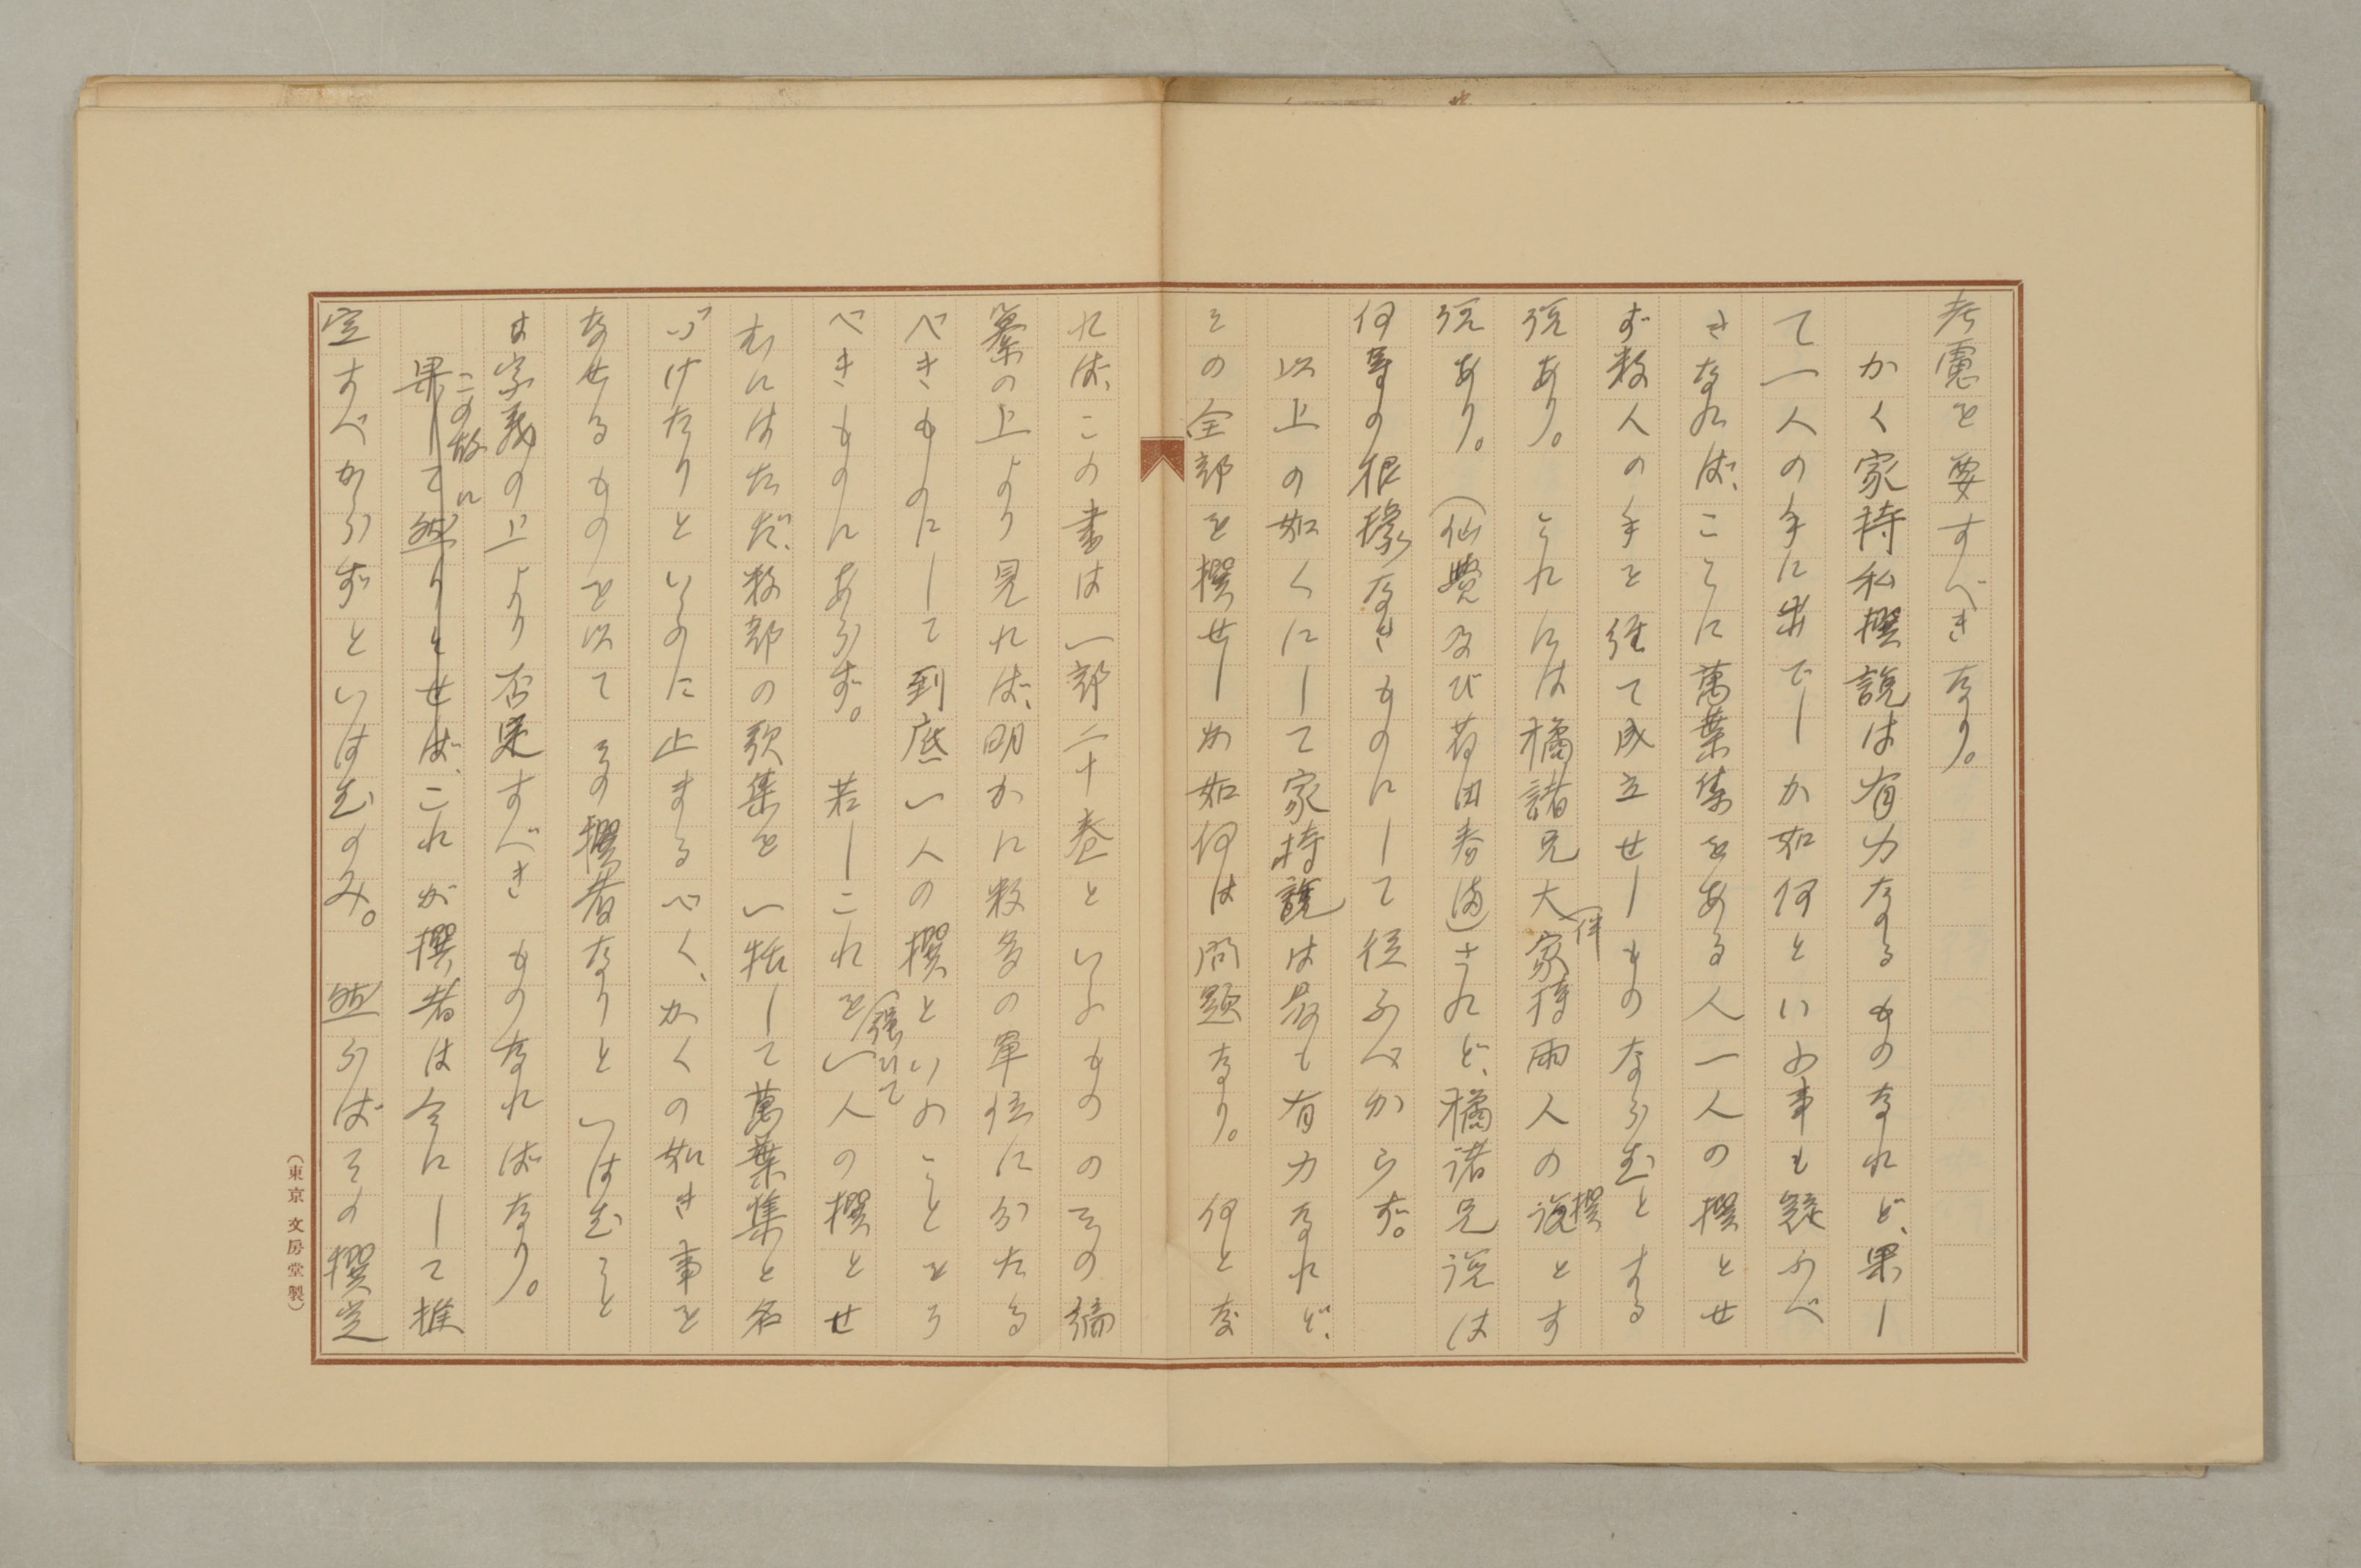 考慮を要すべきなり。
かく家持私撰説は有力なるものなれど、果し
て一人の手に出でしか如何といふ事も疑ふべ
きなれば、ことに萬葉集をある人一人の撰とせ
ず数人の手を經て成立せしものならむとする
説あり。それには橘諸兄大伴家持兩人の撰とす
説あり。(仙覺及び荷田春満)されど、橘諸兄説は
何等の根據なきものにして從ふべからず。
以上の如くにして家持説は最も有力なれど、
その全部を撰せしか如何は問題なり。何とな
れば、この書は一部二十巻といふものゝその編
纂の上より見れば、明かに数多の單位に分たる
べきものにして到底一人の撰といふことをう
べきものにあらず。若しこれを強ひて一人の撰とせ
むにはたゞ、数部の歌集を一括して萬葉集と名
づけたりといふに止まるべく、かくの如き事を
なせるものを以てその撰者なりといはむこと
は字義の上より否定すべきものなればなり。
この故に
果して然りとせば、これが撰者は今にして推
定すべからずといはむのみ。然らばその撰定
(東京 文房堂製)